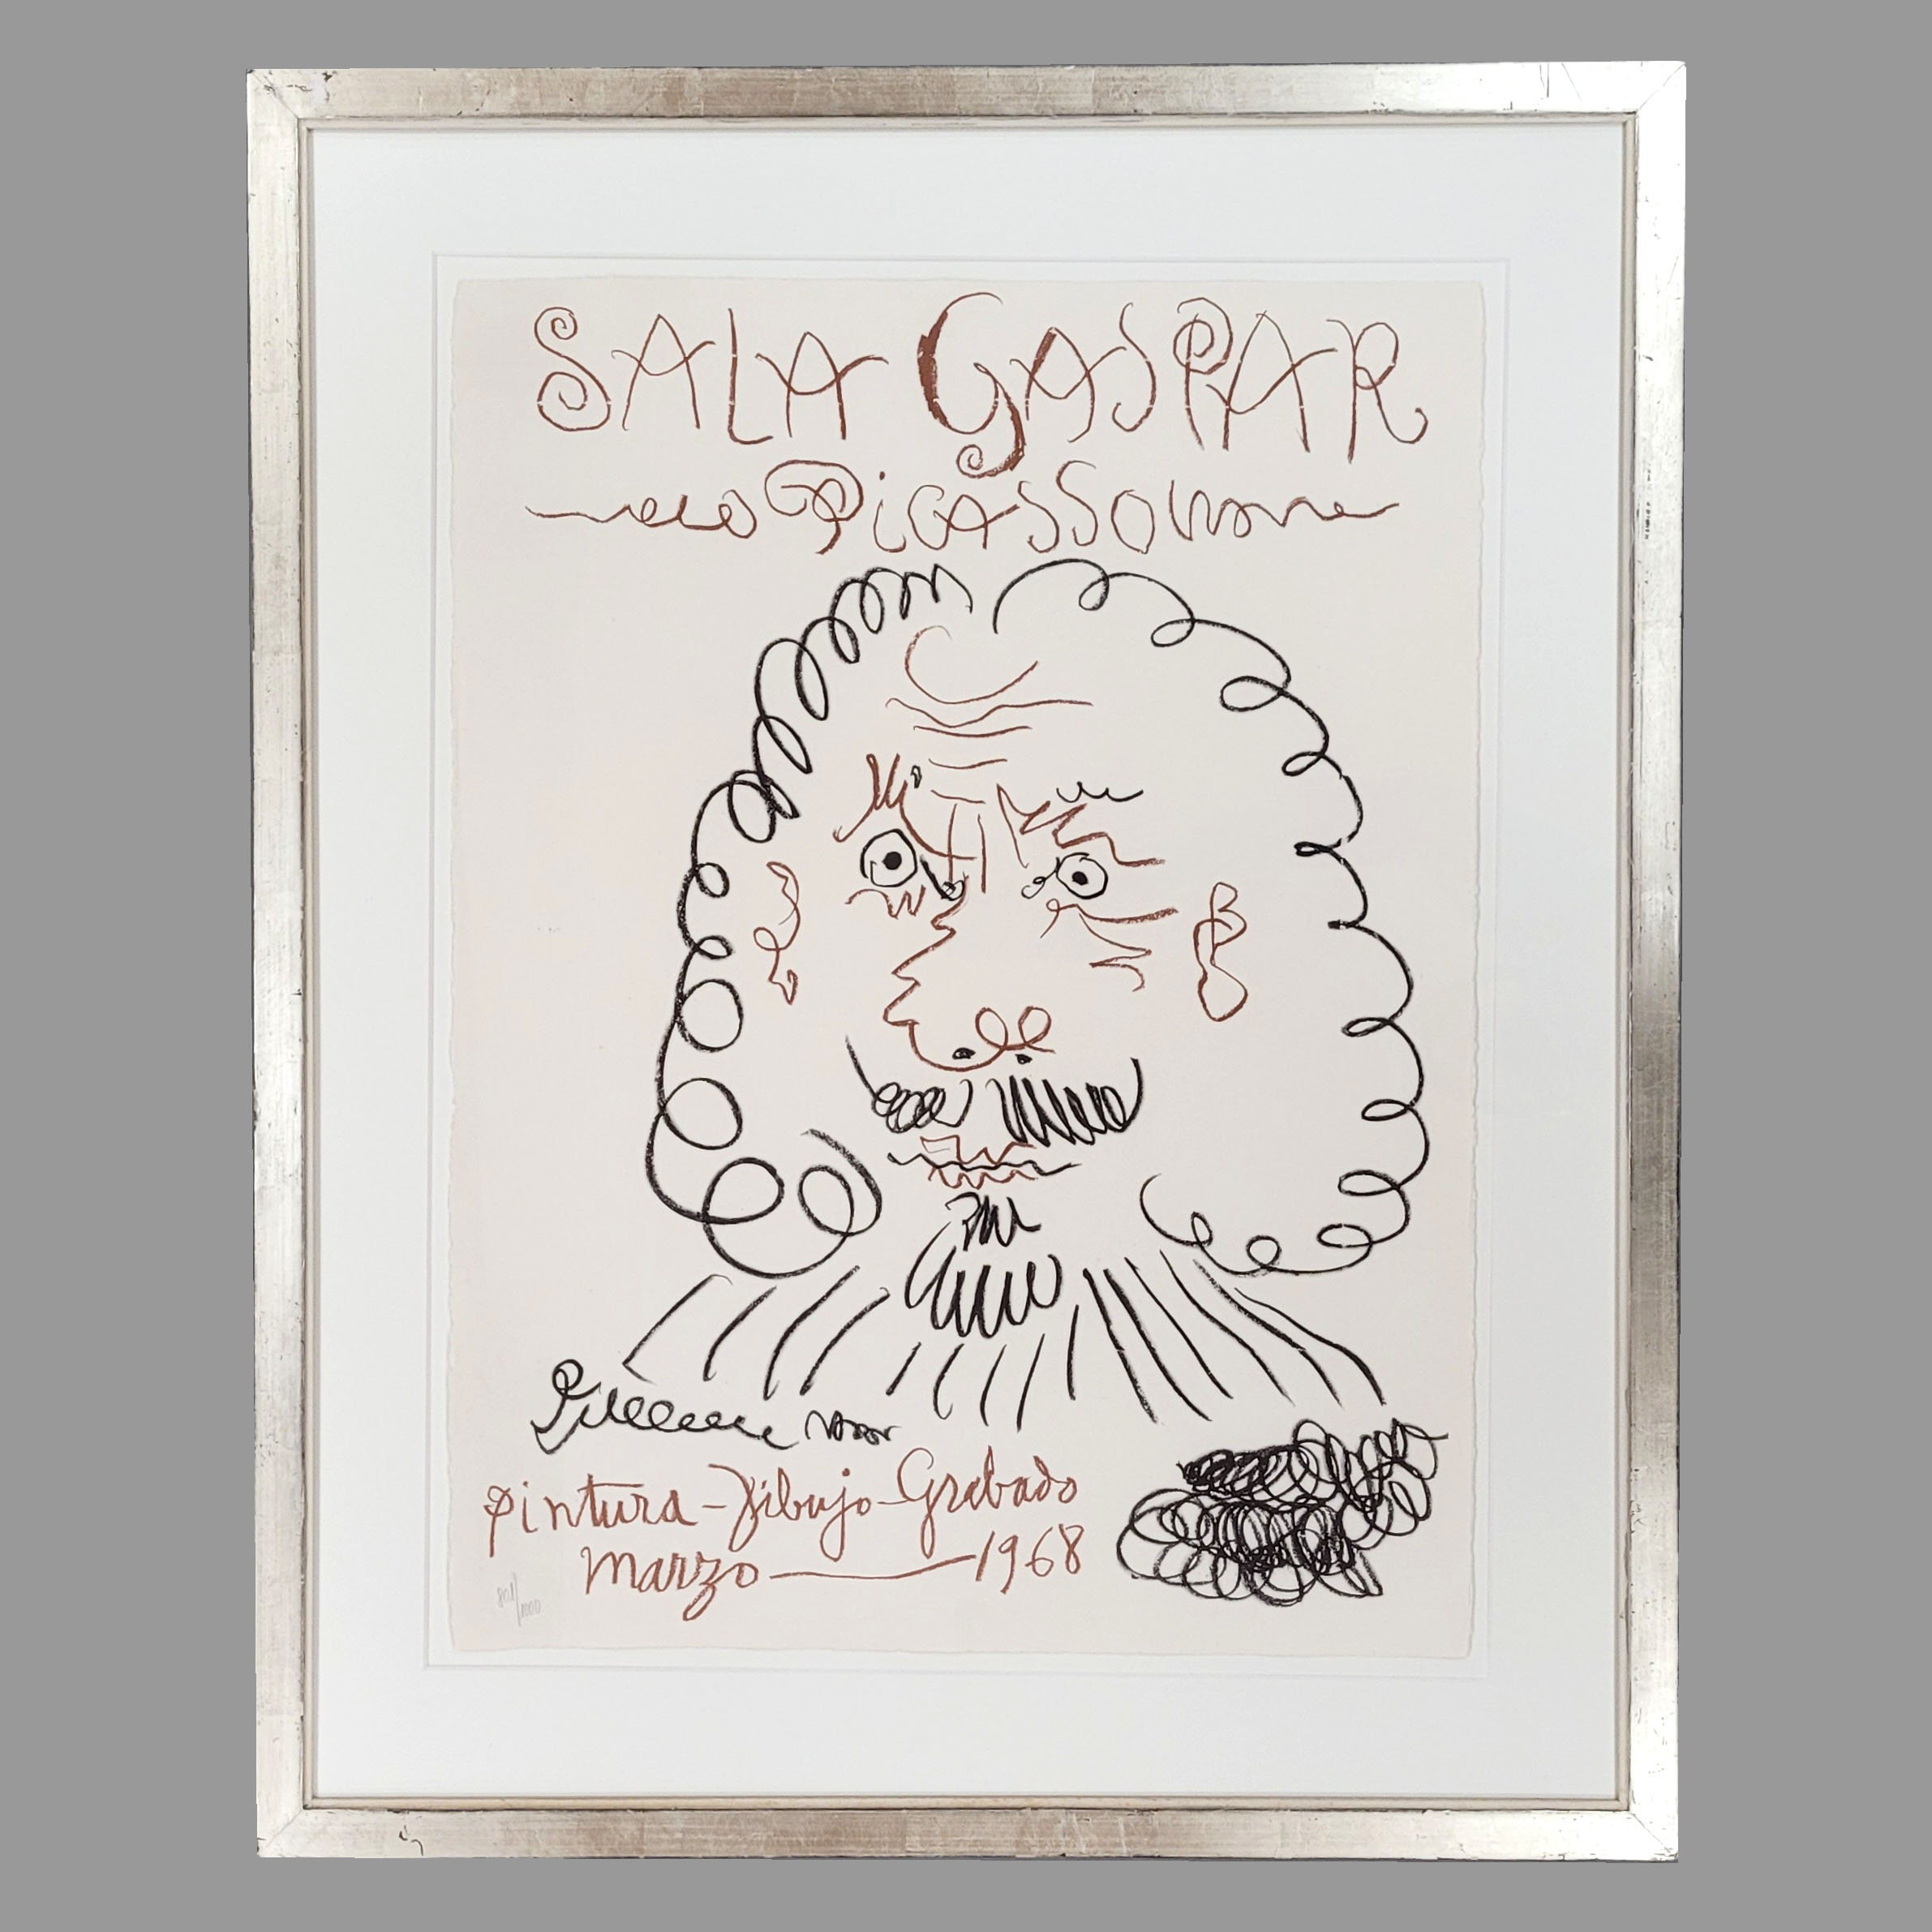 SALA GASPAR
Picasso
pintura-Dibujo-Grabado
marzo — 1968
801/1000